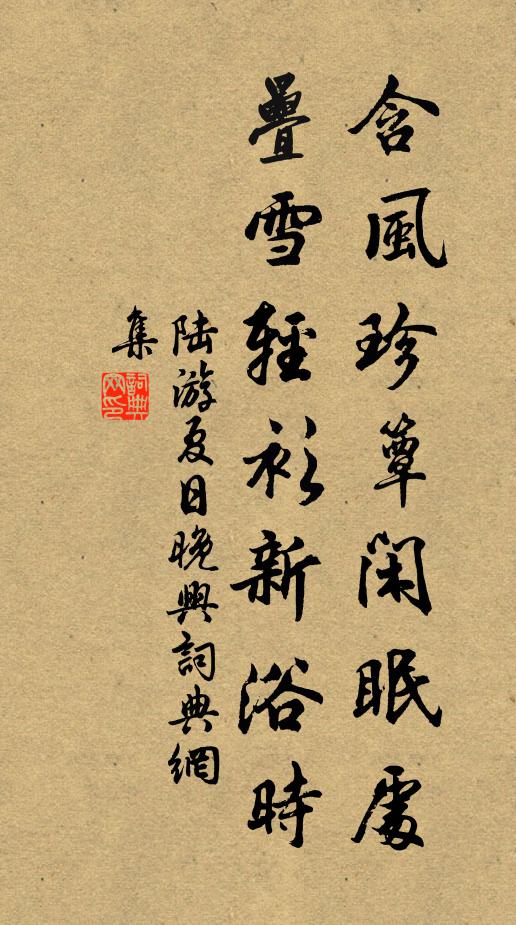 含風珍簟閑眠處
疊雪輕衫新浴時
陆游夏日晚興詞典網
集
詞典網印